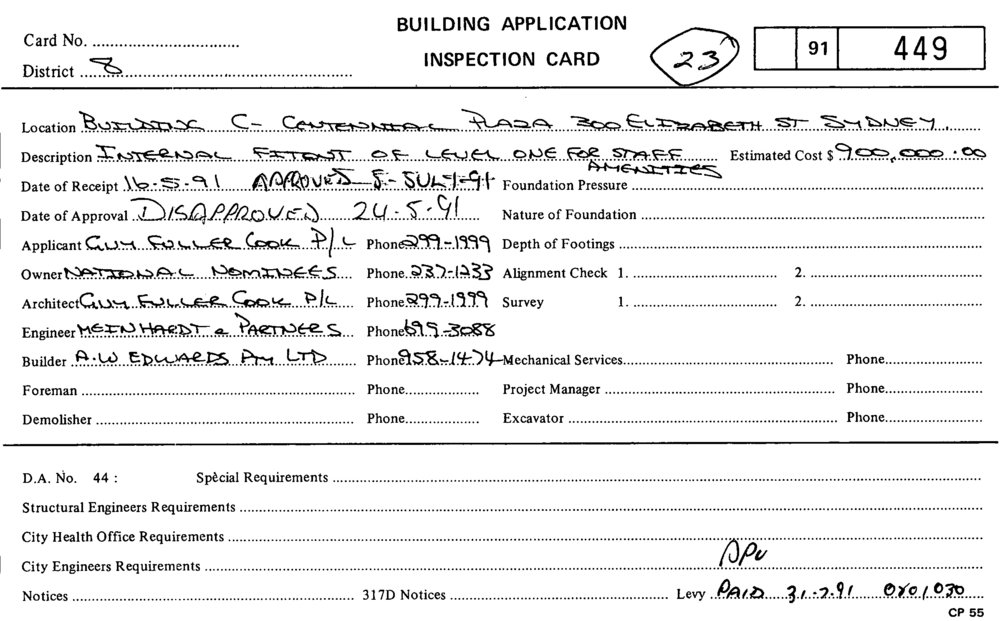 BUILDING APPLICATION
Card No.
INSPECTION CARD
23
91 449
District 8
Location BUILDING C- CENTENNIAL PLAZA 300 ELIZABETH ST SYDNEY.
Description INTERNAL FITOUT OF LEVEL ONE FOR STAFF AMENITIES Estimated Cost $ 900,000.00
Date of Receipt 16-5-91 APPROVED 5-JULY-91 Foundation Pressure
Date of Approval DISAPPROVED 24-5-91 Nature of Foundation
Applicant GUY FULLER COOK P/L Phone 299-1999 Depth of Footings
Owner NATIONAL NOMINEES Phone. 237-1233 Alignment Check 1. 2.
Architect GUY FULLER COOK P/L Phone 299-1999 Survey 1. 2.
Engineer MEINHARDT & PARTNERS Phone 699-3088
Builder A.W EDWARDS Pty LTD Phone 958-1474 Mechanical Services Phone
Foreman Phone Project Manager Phone
Demolisher Phone Excavator Phone
D.A. No. 44 : Special Requirements
Structural Engineers Requirements
City Health Office Requirements
City Engineers Requirements
Notices 317D Notices Levy PAID 31-7-91
CP 55